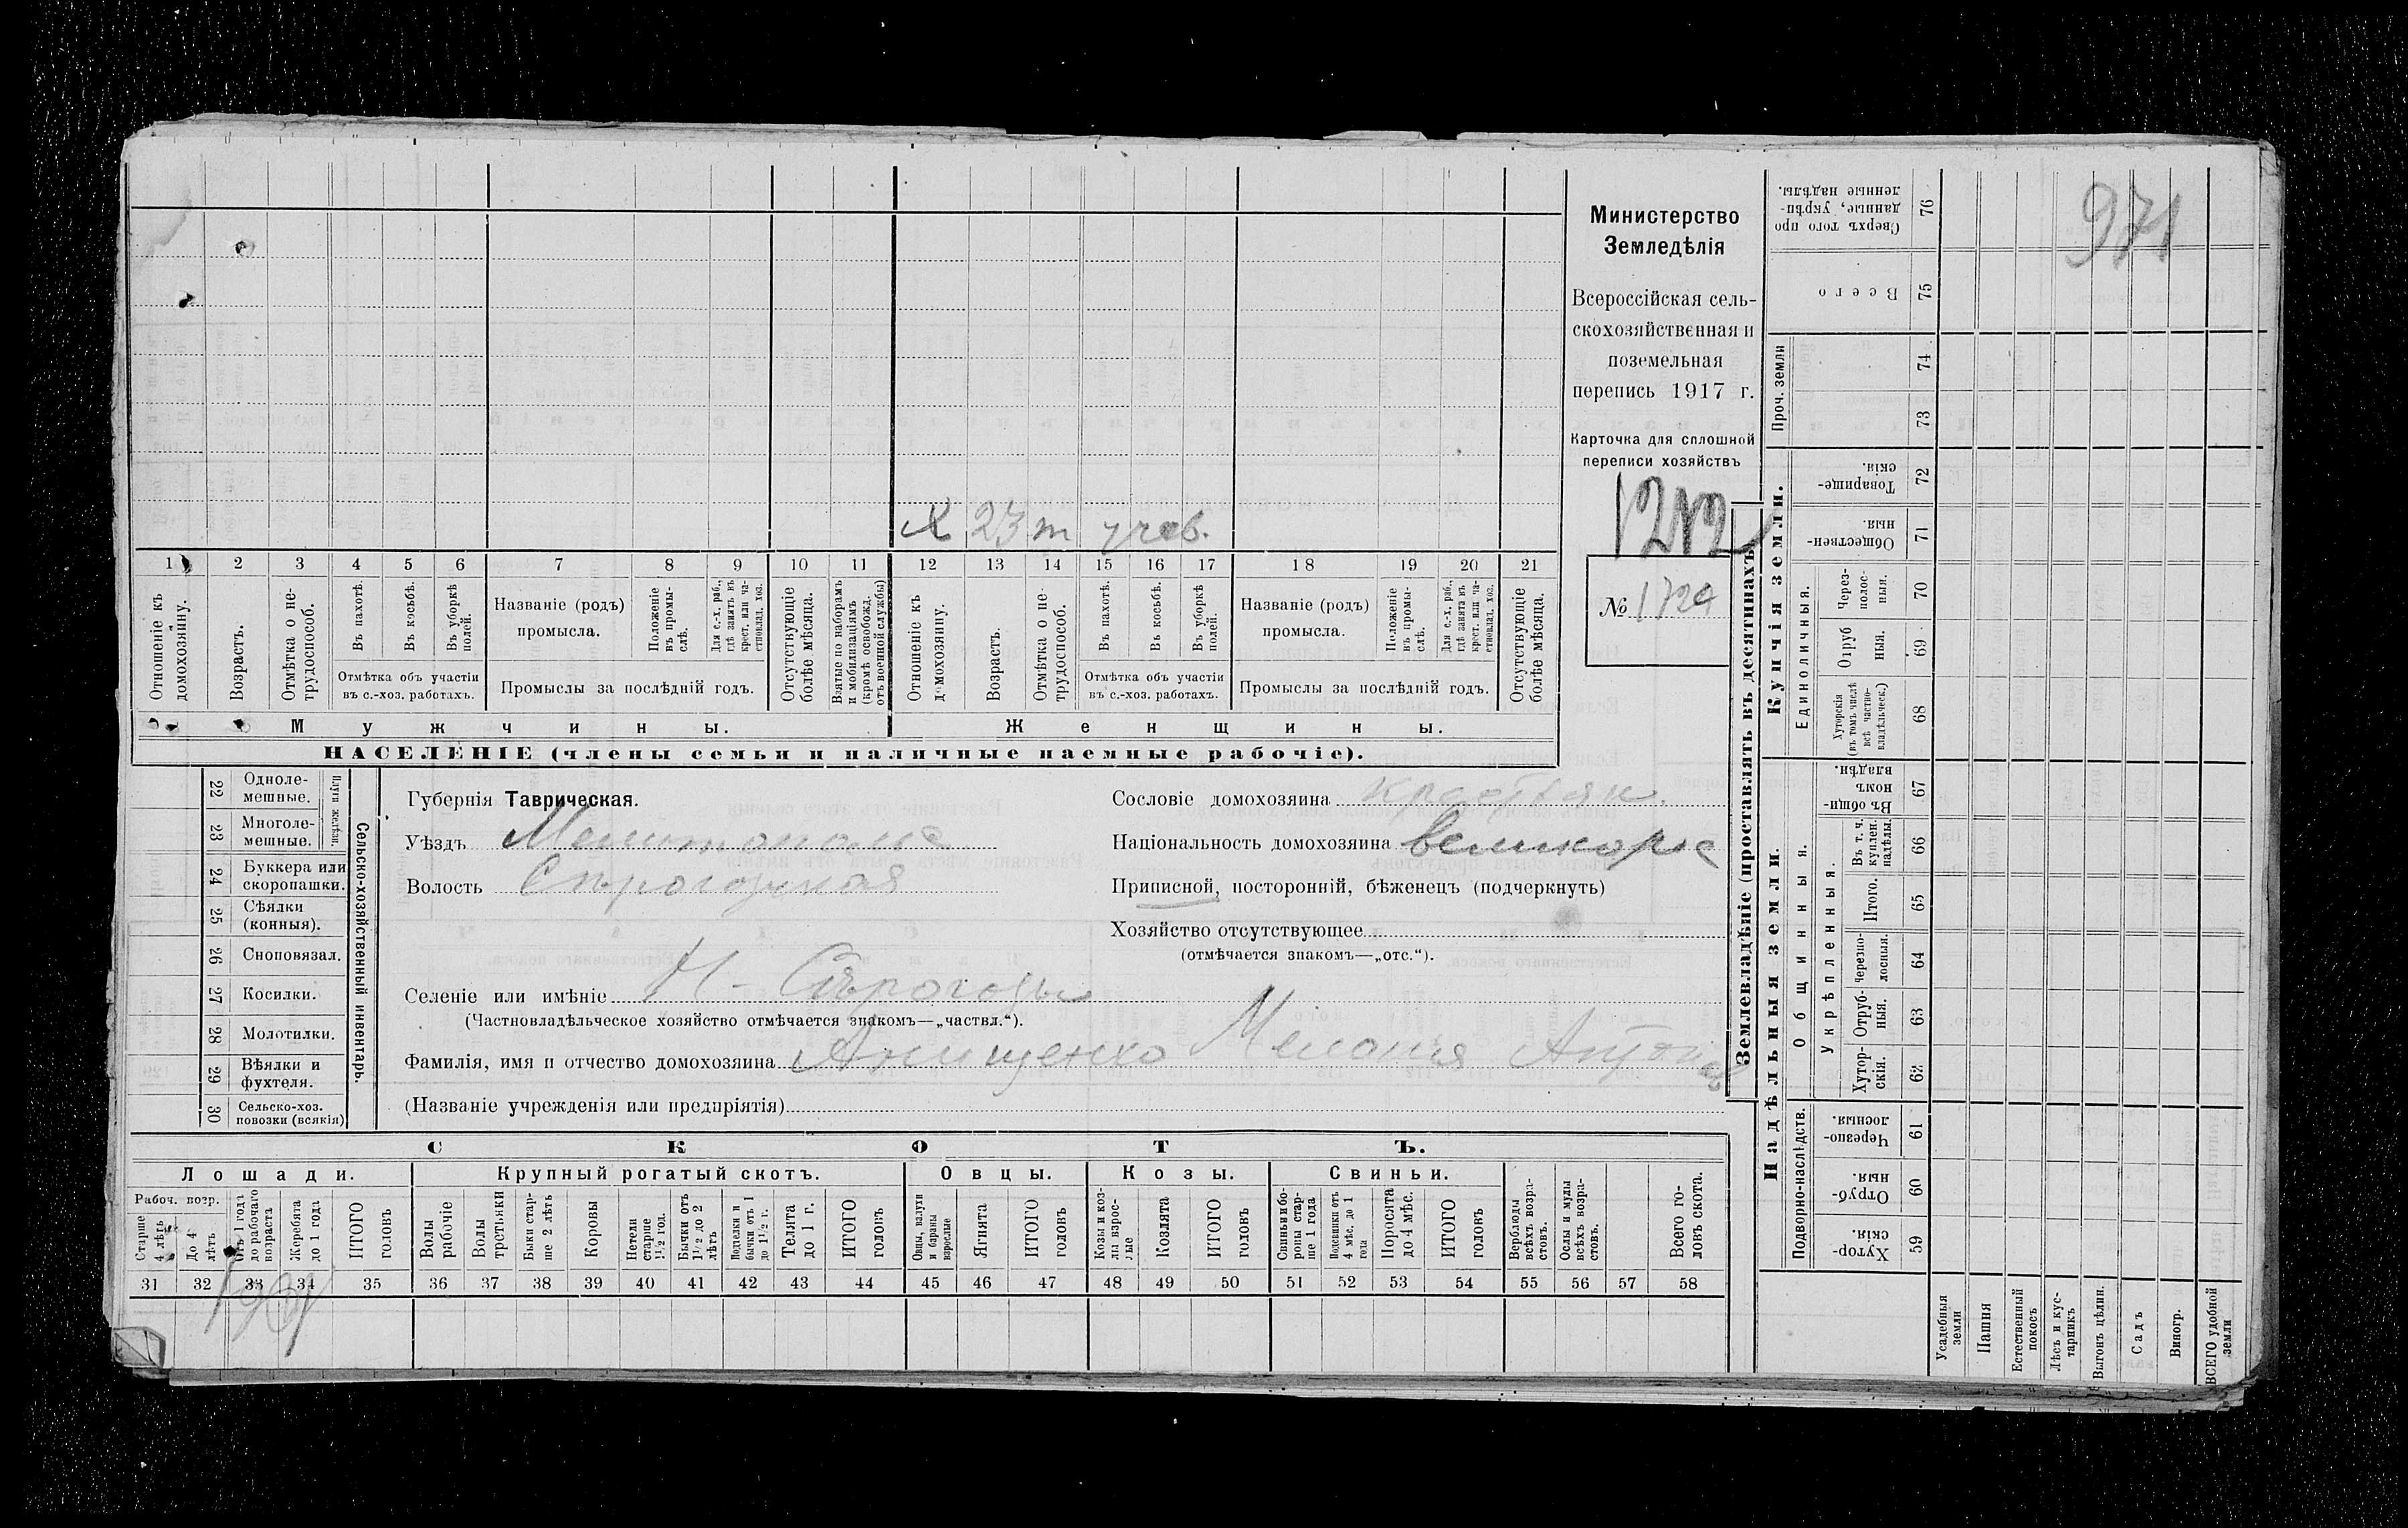 971
Министерство
Земледѣлія
Всероссійская сель-
скохозяйственная и
поземельная
перепись 1917 г.
Карточка для сплошной
переписи хозяйствъ
1212
№ 1729
х 23 т учев.
1 2 3 4 5 6 7 8 9 10 11 12 13 14 15 16 17 18 19 20 21
Отношеніе къ домохозяину.
Возрастъ.
Отмѣтка о не-трудоспособ.
Въ пахотѣ.
Въ косьбѣ.
Въ уборкѣ полей.
Отмѣтка объ участіи
въ с.-хоз. работахъ.
Названіе (родъ)
промысла.
Положеніе въ промы-слѣ.
Для с.-х. раб., гдѣ занятъ въ крест. или ча-стновлад. хоз.
Промыслы за послѣдній годъ.
Отсутствующіе болѣе мѣсяца.
Взятые по наборамъ и мобилизаціямъ (кромѣ освобожд. отъ военной службы)
Отношеніе къ домохозяину.
Возрастъ.
Отмѣтка о не-трудоспособ.
Въ пахотѣ.
Въ косьбѣ.
Въ уборкѣ полей.
Отмѣтка объ участіи
въ с.-хоз. работахъ.
Названіе (родъ)
промысла.
Положеніе въ промы-слѣ.
Для с.-х. раб., гдѣ занята въ крест. или ча-стновлад. хоз.
Промыслы за послѣдній годъ.
Отсутствующіе болѣе мѣсяца.
Мужчины.
Женщины.
НАСЕЛЕНІЕ (члены семьи и наличные наемные рабочіе).
22 Одноле-мешные.
23 Многоле-мешные.
Плуги желѣзн.
24 Буккера или скоропашки.
25 Сѣялки (конныя).
26 Сноповязал.
27 Косилки.
28 Молотилки.
29 Вѣялки и фухтеля.
30 Сельско-хоз. повозки (всякія)
Сельско-хозяйственный инвентарь.
Губернія Таврическая.
Уѣздъ Мелитополь
Волость Сѣрогозская
Сословіе домохозяина крестьян.
Національность домохозяина великорос
Приписной, посторонній, бѣженецъ (подчеркнуть)
Хозяйство отсутствующее
(отмѣчается знакомъ—„отс.“).
Селеніе или имѣніе Н-Сѣрогозы
(Частновладѣльческое хозяйство отмѣчается знакомъ—„частвл.“).
Фамилія, имя и отчество домохозяина Анищенко Мелания Антон
(Названіе учрежденія или предпріятія)
СКОТЪ.
Лошади.
Крупный рогатый скотъ.
Овцы.
Козы.
Свиньи.
Рабоч. возр.
Старше 4 лѣтъ
До 4 лѣтъ
Отъ 1 года до рабочаго возраста
Жеребята до 1 года
ИТОГО головъ
Волы рабочіе
Волы третьяки
Быки стар-ше 2 лѣтъ
Коровы
Нетели старше 1½ год.
Бычки отъ 1½ до 2 лѣтъ
Подтелки и бычки отъ 1 до 1½ г.
Телята до 1 г.
ИТОГО головъ
Овцы, валухи и бараны взрослые
Ягнята
ИТОГО головъ
Козы и коз-лы взрос-лые
Козлята
ИТОГО головъ
Свиньи и бо-ровы стар-ше 1 года
Подсвинки отъ 4 мѣс. до 1 года
Поросята до 4 мѣс.
ИТОГО головъ
Верблюды всѣхъ возра-стовъ.
Ослы и мулы всѣхъ возра-стовъ.
Всего го-ловъ скота.
31 32 33 34 35 36 37 38 39 40 41 42 43 44 45 46 47 48 49 50 51 52 53 54 55 56 57 58
Землевладѣніе (проставлять въ десятинахъ)
Купчія земли.
Надѣльныя земли.
Сверхъ того про-данные, укрѣп-ленные надѣлы. 76
Всего 75
Проч. земли
74
73
Товарище-скія. 72
Обществен-ныя. 71
Единоличныя.
Через-полос-ныя. 70
Отруб-ныя. 69
Хуторскія (въ томъ числѣ всѣ частно-владѣльческ.) 68
Въ общи-номъ владѣн. 67
Общинныя.
Укрѣпленныя.
Въ т. ч. куплен. надѣлы. 66
Итого. 65
Черезпо-лосныя. 64
Отруб-ныя. 63
Хутор-скія. 62
Подворно-наслѣдств.
Черезпо-лосныя. 61
Отруб-ныя. 60
Хутор-скія. 59
Усадебныя земли
Пашня
Естественный покосъ
Лѣсъ и кус-тарникъ
Выгонъ цѣлин.
Садъ
Виногр.
ВСЕГО удобной земли